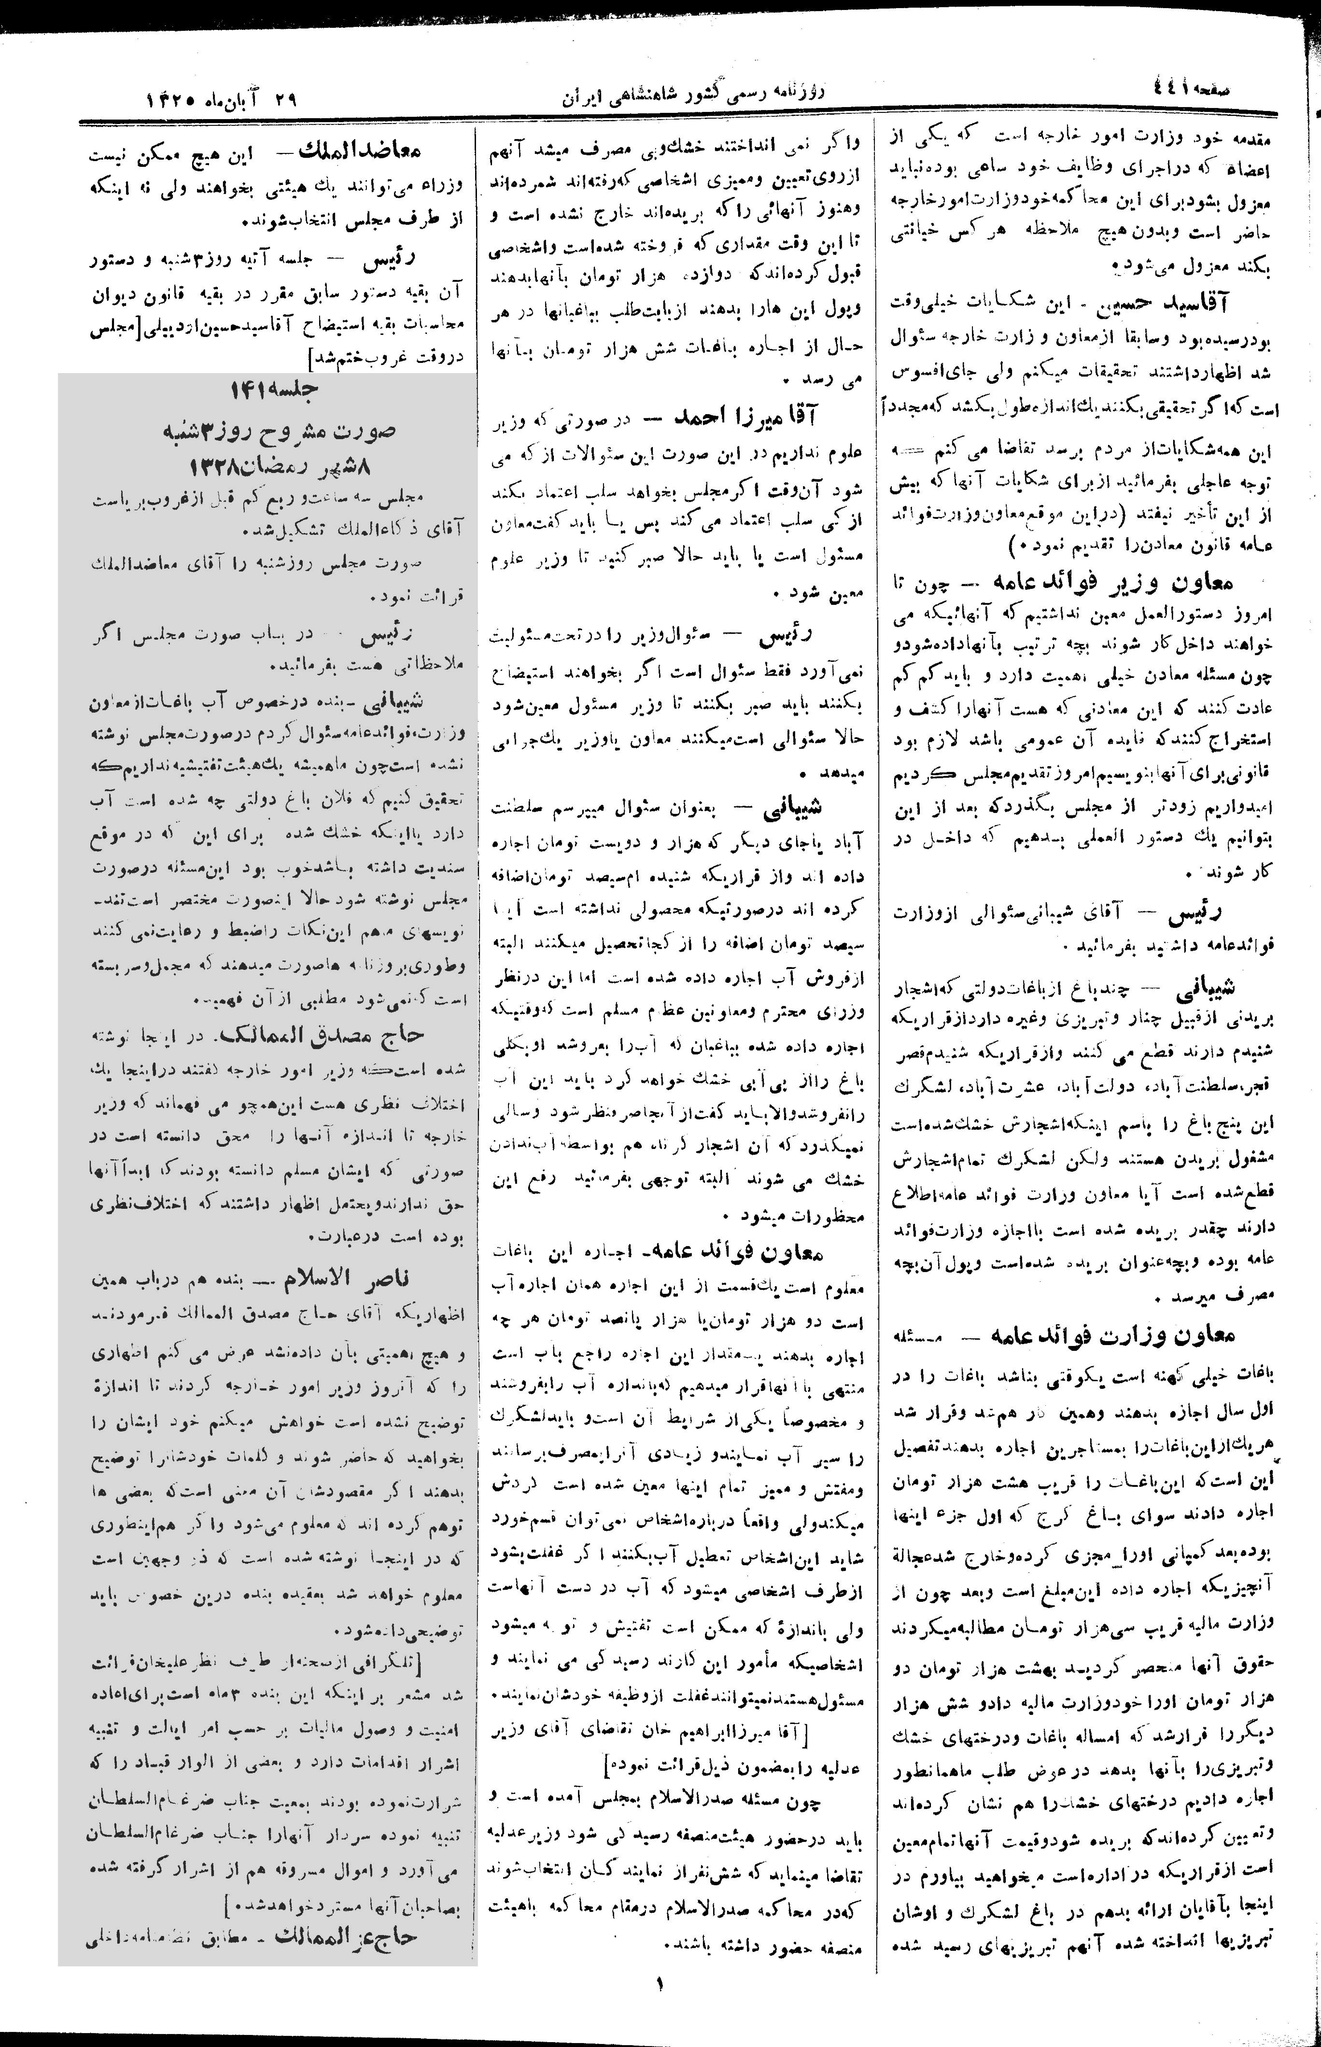 صفحه ۴۴۱
روزنامه رسمی کشور شاهنشاهی ایران
۲۹ آبان‌ماه ۱۳۲۵
مقدمه خود وزارت امور خارجه است که یکی از
اعضاء که در اجرای وظایف خود ساعی بوده نباید
معزول بشود برای این محاکمه خود وزارت امور خارجه
حاضر است و بدون هیچ ملاحظه هر کس خیانتی
بکند معزول می‌شود.
آقا سید حسین - این شکایات خیلی وقت
بود رسیده بود و سابقا از معاون وزارت خارجه سئوال
شد اظهار داشتند تحقیقات میکنم ولی جای افسوس
است که اگر تحقیقی بکنند یك اندازه طول بکشد که مجدداً
این همه شکایات از مردم برسد تقاضا می کنم که
توجه عاجلی بفرمائید از برای شکایات آنها که بیش
از این تأخیر نیفتد (در این موقع معاون وزارت فوائد
عامه قانون معادن را تقدیم نمود.)
معاون وزیر فوائد عامه — چون تا
امروز دستور العمل معین نداشتیم که آنهائیکه می
خواهند داخل کار شوند بچه ترتیب بآنها داده شود و
چون مسئله معادن خیلی اهمیت دارد و باید کم کم
عادت کنند که این معادنی که هست آنها را کشف و
استخراج کنند که فایده آن عمومی باشد لازم بود
قانونی برای آنها بنویسیم امروز تقدیم مجلس کردیم
امیدواریم زودتر از مجلس بگذرد که بعد از این
بتوانیم یك دستور العملی بدهیم که داخل در
کار شوند.
رئیس — آقای شیبانی سئوالی از وزارت
فوائد عامه داشتید بفرمائید.
شیبانی — چند باغ از باغات دولتی که اشجار
بریدنی از قبیل چنار و تبریزی و غیره دارد از قراریکه
شنیدم دارند قطع می کنند و از قراریکه شنیدم قصر
قجر، سلطنت آباد، دولت آباد، عشرت آباد، لشگرك
این پنج باغ را باسم اینکه اشجارش خشك شده است
مشغول بریدن هستند ولکن لشگرك تمام اشجارش
قطع شده است آیا معاون وزارت فوائد عامه اطلاع
دارند چقدر بریده شده است با اجازه وزارت فوائد
عامه بوده و بچه عنوان بریده شده است و پول آن بچه
مصرف میرسد.
معاون وزارت فوائد عامه — مسئله
باغات خیلی کهنه است یکوقتی بناشد باغات را در
اول سال اجاره بدهند و همین کار هم شد و قرار شد
هر یك از این باغات را بمستاجرین اجاره بدهند تفصیل
این است که این باغات را قریب هشت هزار تومان
اجاره دادند سوای باغ کرج که اول جزء اینها
بوده بعد کمپانی اورا مجزی کرده و خارج شد عجالة
آنچیزیکه اجاره داده این مبلغ است و بعد چون از
وزارت مالیه قریب سی هزار تومان مطالبه میکردند
حقوق آنها منحصر کردید بهشت هزار تومان دو
هزار تومان اورا خود وزارت مالیه داد و شش هزار
دیگر را قرار شد که امساله باغات و درختهای خشك
و تبریزی را بآنها بدهد در عوض طلب ما همانطور
اجاره دادیم درختهای خشك را هم نشان کرده‌اند
و تعیین کرده‌اند که بریده شود و قیمت آنها تمام معین
است از قراریکه در اداره است میخواهید بیاورم در
اینجا بآقایان ارائه بدهم در باغ لشگرك و اوشان
تبریزیها انداخته شده آنهم تبریزیهای رسید شده
و اگر نمی انداختند خشك و بی مصرف میشد آنهم
از روی تعیین و ممیزی اشخاصی که رفته‌اند شمرده‌اند
و هنوز آنهائی را که بریده‌اند خارج نشده است و
تا این وقت مقداری که فروخته شده‌است و اشخاصی
قبول کرده‌اند که دوازده هزار تومان بآنها بدهند
و پول این هارا بدهند از بابت طلب بباغبانها در هر
حال از اجاره باغات شش هزار تومان بآنها
می رسد.
آقا میرزا احمد — در صورتی که وزیر
علوم نداریم در این صورت این سئوالات از که می
شود آن وقت اگر مجلس بخواهد سلب اعتماد بکند
از کی سلب اعتماد می کند پس یا باید گفت معاون
مسئول است یا باید حالا صبر کنید تا وزیر علوم
معین شود.
رئیس — سئوال وزیر را در تحت مسئولیت
نمی آورد فقط سئوال است اگر بخواهند استیضاح
بکنند باید صبر بکنند تا وزیر مسئول معین شود
حالا سئوالی است میکنند معاون یا وزیر یك جوابی
میدهد.
شیبانی — بعنوان سئوال میپرسم سلطنت
آباد یا جای دیگر که هزار و دویست تومان اجاره
داده اند و از قراریکه شنیده ام سیصد تومان اضافه
کرده اند درصورتیکه محصولی نداشته است آیا
سیصد تومان اضافه را از کجا تحصیل میکنند البته
از فروش آب اجاره داده شده است اما این در نظر
وزرای محترم و معاونین عظام مسلم است که وقتیکه
اجاره داده شده بباغبان که آب را بفروشد او بکلی
باغ را از بی آبی خشك خواهد کرد باید این آب
را نفروشد والا باید گفت از آنجا صرفنظر شود و سالی
نمیگذرد که آن اشجار کرناد هم بواسطه آب ندادن
خشك می شوند البته توجهی بفرمائید رفع این
محظورات میشود.
معاون فوائد عامه - اجاره این باغات
معلوم است یك قسمت از این اجاره همان اجاره آب
است دو هزار تومان یا هزار پانصد تومان هر چه
اجاره بدهند یك مقدار این اجاره راجع باب است
منتهی با آنها قرار میدهیم که باندازه آب را بفروشند
و مخصوصاً یکی از شرایط آن است و باید لشگرك
را سیر آب نمایند و زیادی آنرا بمصرف برسانند
و مفتش و ممیز تمام اینها معین شده است گردش
میکند ولی واقعاً درباره اشخاص نمی توان قسم خورد
شاید این اشخاص تعطیل آب بکنند اگر غفلت بشود
از طرف اشخاصی میشود که آب در دست آنهاست
ولی باندازهٔ که ممکن است تفتیش و توجه میشود
اشخاصیکه مأمور این کارند رسیدگی می نمایند و
مسئول هستند نمیتوانند غفلت از وظیفه خودشان نمایند.
[آقا میرزا ابراهیم خان تقاضای آقای وزیر
عدلیه را بمضمون ذیل قرائت نمود.]
چون مسئله صدرالاسلام بمجلس آمده است و
باید در حضور هیئت منصفه رسیدگی شود وزیر عدلیه
تقاضا مینماید که شش نفر از نمایندگان انتخاب شوند
که در محاکمه صدرالاسلام در مقام محاکمه باهیئت
منصفه حضور داشته باشند.
معاضد الملك — این هیچ ممکن نیست
وزراء می توانند یك هیئتی بخواهند ولی نه اینکه
از طرف مجلس انتخاب شوند.
رئیس — جلسه آتیه روز ۳ شنبه و دستور
آن بقیه دستور سابق مقرر در بقیه قانون دیوان
محاسبات بقیه استیضاح آقا سید حسین اردبیلی [مجلس
در وقت غروب ختم شد]
جلسه ۱۴۱
صورت مشروح روز ۳ شنبه
۸ شهر رمضان ۱۳۲۸
مجلس سه ساعت و ربع کم قبل از غروب بریاست
آقای ذکاءالملك تشکیل شد.
صورت مجلس روز شنبه را آقای معاضدالملك
قرائت نمود.
رئیس — در باب صورت مجلس اگر
ملاحظاتی هست بفرمائید.
شیبانی - بنده در خصوص آب باغات از معاون
وزارت فوائد عامه سئوال کردم در صورت مجلس نوشته
نشده است چون ما همیشه یك هیئت تفتیشیه نداریم که
تحقیق کنیم که فلان باغ دولتی چه شده است آب
دارد یا اینکه خشك شده برای این که در موقع
سندیت داشته باشد خوب بود این مسئله در صورت
مجلس نوشته شود حالا اینصورت مختصر است تند-
نویسهای مهم این نکات را ضبط و رعایت نمی کنند
و طوری بروزنامه ها صورت میدهند که مجمل و سر بسته
است که نمی شود مطلبی از آن فهمید.
حاج مصدق الممالک - در اینجا نوشته
شده است که وزیر امور خارجه گفتند در اینجا یك
اختلاف نظری هست این همچو می فهماند که وزیر
خارجه تا اندازه آنها را محق دانسته است در
صورتی که ایشان مسلم دانسته بودند که ابداً آنها
حق ندارند و یحتمل اظهار داشتند که اختلاف نظری
بوده است در عبارت.
ناصر الاسلام — بنده هم در باب همین
اظهاریکه آقای حاج مصدق الممالک فرمودند
و هیچ اهمیتی بآن داده نشد عرض می کنم اظهاری
را که آنروز وزیر امور خارجه کردند تا اندازهٔ
توضیح نشده است خواهش میکنم خود ایشان را
بخواهید که حاضر شوند و کلمات خودشانرا توضیح
بدهند اگر مقصودشان آن معنی است که بعضی ها
توهم کرده اند که معلوم می شود و اگر هم اینطوری
که در اینجا نوشته شده است که ذو وجهین است
معلوم خواهد شد بعقیده بنده درین خصوص باید
توضیحی داده شود.
[تلگرافی از صحنه از طرف نظر علیخان قرائت
شد مشعر بر اینکه این بنده ۳ ماه است برای اعاده
امنیت و وصول مالیات بر حسب امر ایالت و تنبیه
اشرار اقدامات دارد و بعضی از الوار قباد را که
شرارت نموده بودند بمعیت جناب ضرغام السلطان
تنبیه نموده سردار آنهارا جناب ضرغام السلطان
می آورد و اموال مسروقه هم از اشرار گرفته شده
بصاحبان آنها مسترد خواهد شد.]
حاج عز الممالك - مطابق نظامنامه داخلی
۱